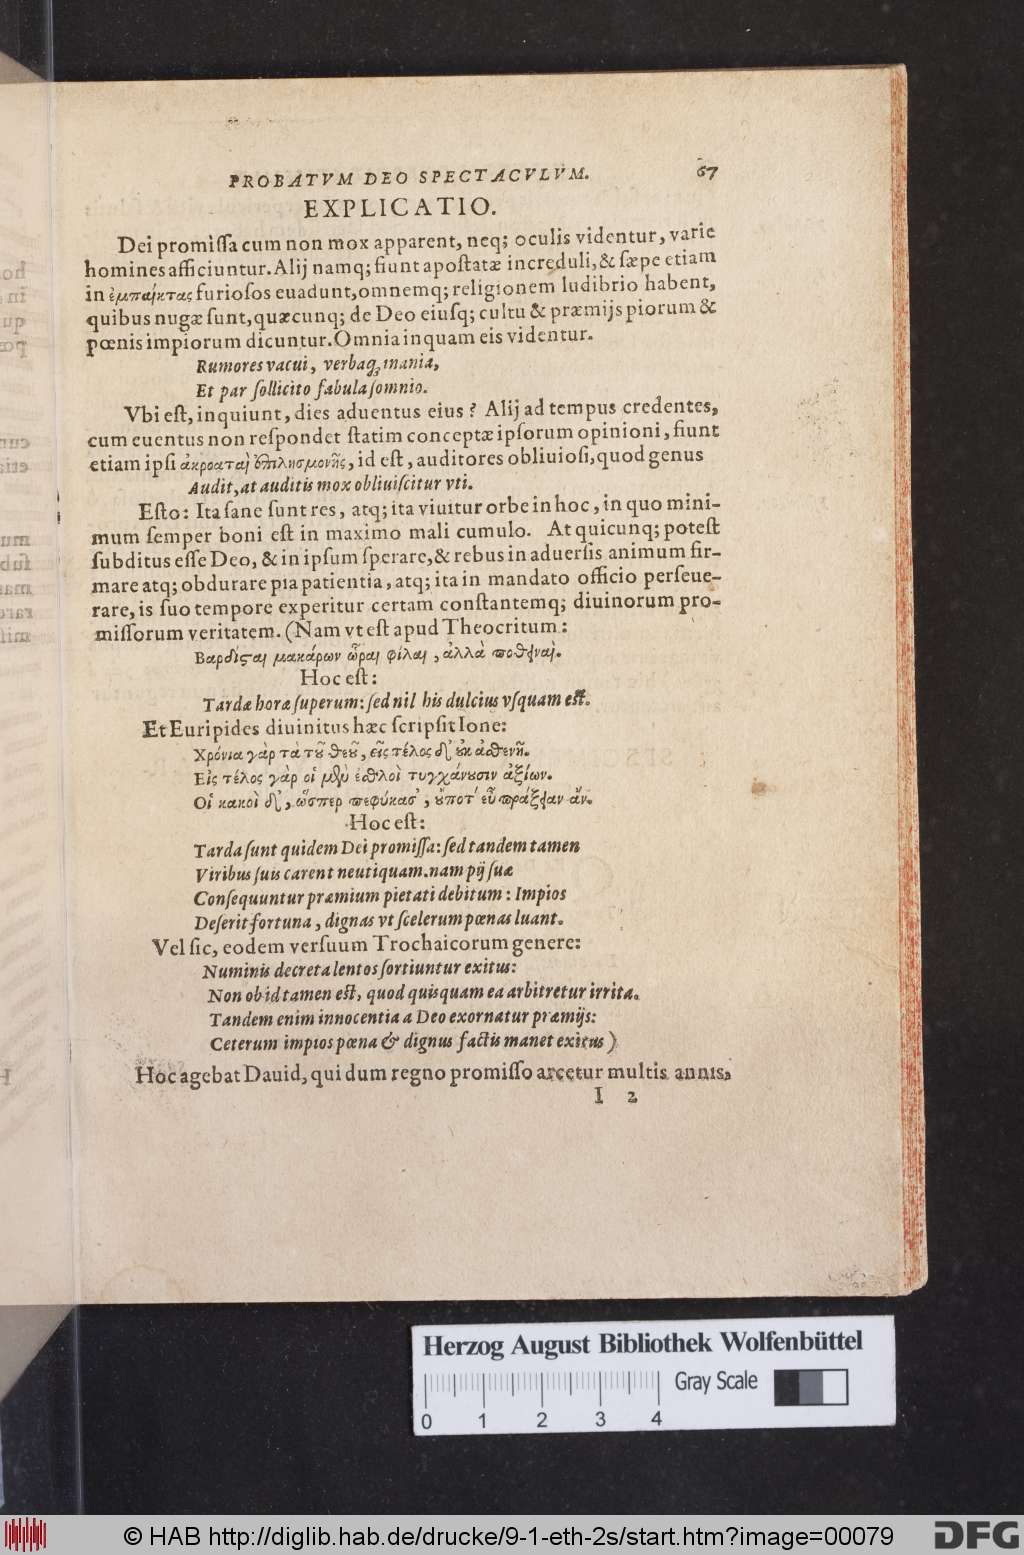 PROBATVM DEO SPECTACVLVM. 67
EXPLICATIO.
Dei promiſſa cum non mox apparent, neq; oculis videntur, varie
homines afficiuntur. Alij namq; fiunt apoſtatæ increduli, & ſæpe etiam
in ἐμπαίκτας furioſos euadunt, omnemq; religionem ludibrio habent,
quibus nugæ ſunt, quæcunq; de Deo eiuſq; cultu & præmijs piorum &
pœnis impiorum dicuntur. Omnia inquam eis videntur.
Rumores vacui, verbaq; inania,
Et par ſollicito fabula ſomnio.
Vbi eſt, inquiunt, dies aduentus eius? Alij ad tempus credentes,
cum euentus non reſpondet ſtatim conceptæ ipſorum opinioni, fiunt
etiam ipſi ἀκροαταὶ ἐπιλησμονῆς, id eſt, auditores obliuioſi, quod genus
Audit, at auditis mox obliuiſcitur vti.
Eſto: Ita ſane ſunt res, atq; ita viuitur orbe in hoc, in quo mini-
mum ſemper boni eſt in maximo mali cumulo. At quicunq; poteſt
ſubditus eſſe Deo, & in ipſum ſperare, & rebus in aduerſis animum fir-
mare atq; obdurare pia patientia, atq; ita in mandato officio perſeue-
rare, is ſuo tempore experitur certam conſtantemq; diuinorum pro-
miſſorum veritatem. (Nam vt eſt apud Theocritum:
Βαρδισται μακάρων ὧραι φίλαι, ἀλλὰ ποθειναὶ.
Hoc eſt:
Tardæ horæ ſuperum: ſed nil his dulcius vſquam eſt.
Et Euripides diuinitus hæc ſcripſit Ione:
Χρόνια γὰρ τὰ τοῦ θεοῦ, εἰς τέλος δ' οὐκ ἀσθενῆ.
Εἰς τέλος γὰρ οἱ μὲν ἐσθλοὶ τυγχάνουσιν ἀξίων.
Οἱ κακοὶ δ', ὥσπερ πεφύκασ', οὔποτ' εὖ πράξειαν ἄν.
Hoc eſt:
Tarda ſunt quidem Dei promiſſa: ſed tandem tamen
Viribus ſuis carent neutiquam. nam pij ſuæ
Conſequuntur præmium pietati debitum: Impios
Deſerit fortuna, dignas vt ſcelerum pœnas luant.
Vel ſic, eodem verſuum Trochaicorum genere:
Numinis decreta lentos ſortiuntur exitus:
Non ob id tamen eſt, quod quisquam ea arbitretur irrita.
Tandem enim innocentia a Deo exornatur præmijs:
Ceterum impios pœna & dignus factis manet exitus)
Hoc agebat Dauid, qui dum regno promiſſo arcetur multis annis,
I 2
Herzog August Bibliothek Wolfenbüttel
Gray Scale
0 1 2 3 4
© HAB http://diglib.hab.de/drucke/9-1-eth-2s/start.htm?image=00079
DFG